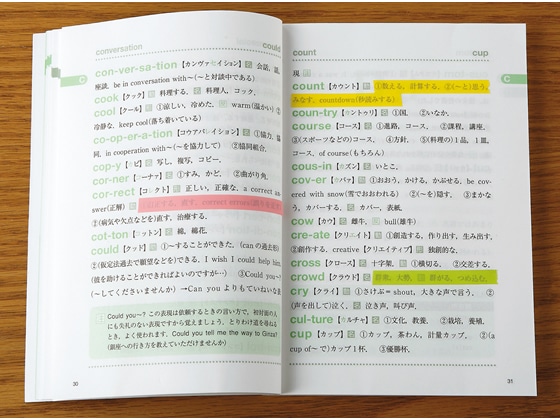 conversation
could
C
con-ver-sa-tion【カンヴァセイション】 会話, 
座談, be in conversation with〜(〜と対談中である)
cook【クック】 料理する, 料理人, コック.
cool【クール】 ①涼しい, 冷めた, warm(温かい) ②
冷静な, keep cool(落ち着いている)
co-op-er-a-tion【コウアパレイション】 ①協力, 協
同, in cooperation with〜(〜を協力して) ②協同組合.
cop-y【カピ】 写し, 複写, コピー.
cor-ner【コーナァ】 ①すみ, かど, ②曲がり角.
cor-rect【コレクト】 正しい, 正確な, a correct an
swer(正解) correct errors
②(病気や欠点などを)直す, 治療する.
cot-ton【コットン】 綿, 綿花.
could【クッド】 ①〜することができた, (canの過去形)
②(仮定法過去で願望などを)できる, I wish I could help him.
(彼を助けることができればよいのですが…) ③Could you〜?
(〜してくださいませんか) →Can you よりもていねいな
Could you〜? この表現は依頼するときの言い方で, 初対面の人
にも失礼のない表現ですから覚えましょう. とりわけ道を尋ねる
とき, よく使われます. Could you tell me the way to Ginza?
(銀座への行き方を教えていただけませんか)
30
count
cup
C
現
count【カウント】 ①数える, 計算する, ②(〜と)思う,
みなす, countdown(秒読みする)
coun-try【カントゥリ】 ①国, ②いなか.
course【コース】 ①進路, コース, ②課程, 講座,
③(スポーツなどの)コース, ④方針, ⑤(料理の)1品, 1皿,
コース, of course(もちろん)
cous-in【カズン】 いとこ.
cov-er【カヴァ】 ①おおう, かける, かぶせる, be cov-
ered with snow(雪でおおわれる) ②(〜を)隠す, ③まかな
う, カバーする, カバー, 表紙.
cow【カウ】 雌牛, bull(雄牛)
cre-ate【クリエイト】 ①創造する, 作り出す, 生み出す,
②創作する, creative【クリエイティブ】 独創的な.
cross【クロース】 十字架, ①横切る, ②交差する.
crowd【クラウド】 群衆, 大勢, 群がる, つめ込む.
cry【クライ】 ①さけぶ=shout, 大きな声で言う, ②
(声を出して)泣く, 泣き声, 叫び声.
cul-ture【カルチャ】 ①文化, 教養, ②栽培, 養殖.
cup【カップ】 ①カップ, 茶わん, 計量カップ, ②(a
cup of〜で)カップ1杯, ③優勝杯.
31